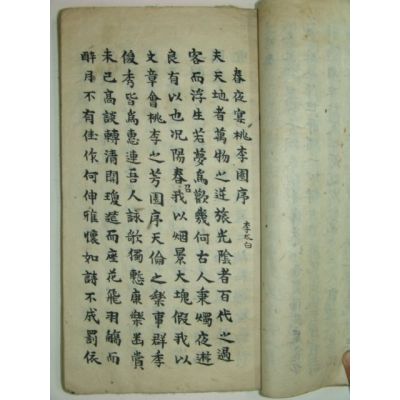 春夜宴桃李園序 李太白
夫天地者萬物之逆旅光陰者百代之過
客而浮生若夢爲歡幾何古人秉燭夜遊
良有以也况陽春召我以烟景大塊假我以
文章會桃李之芳園序天倫之樂事群季
俊秀皆爲惠連吾人詠歌獨慙康樂幽賞
未已高談轉清開瓊筵而座花飛羽觴而
醉月不有佳作何伸雅懷如詩不成罰依